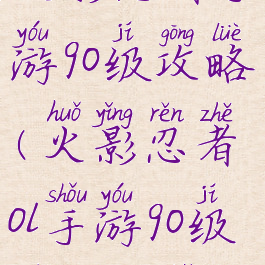 yóu jí gōng lüè
游90级攻略
huǒ yǐng rěn zhě
(火影忍者
shǒu yóu jí
ol手游90级